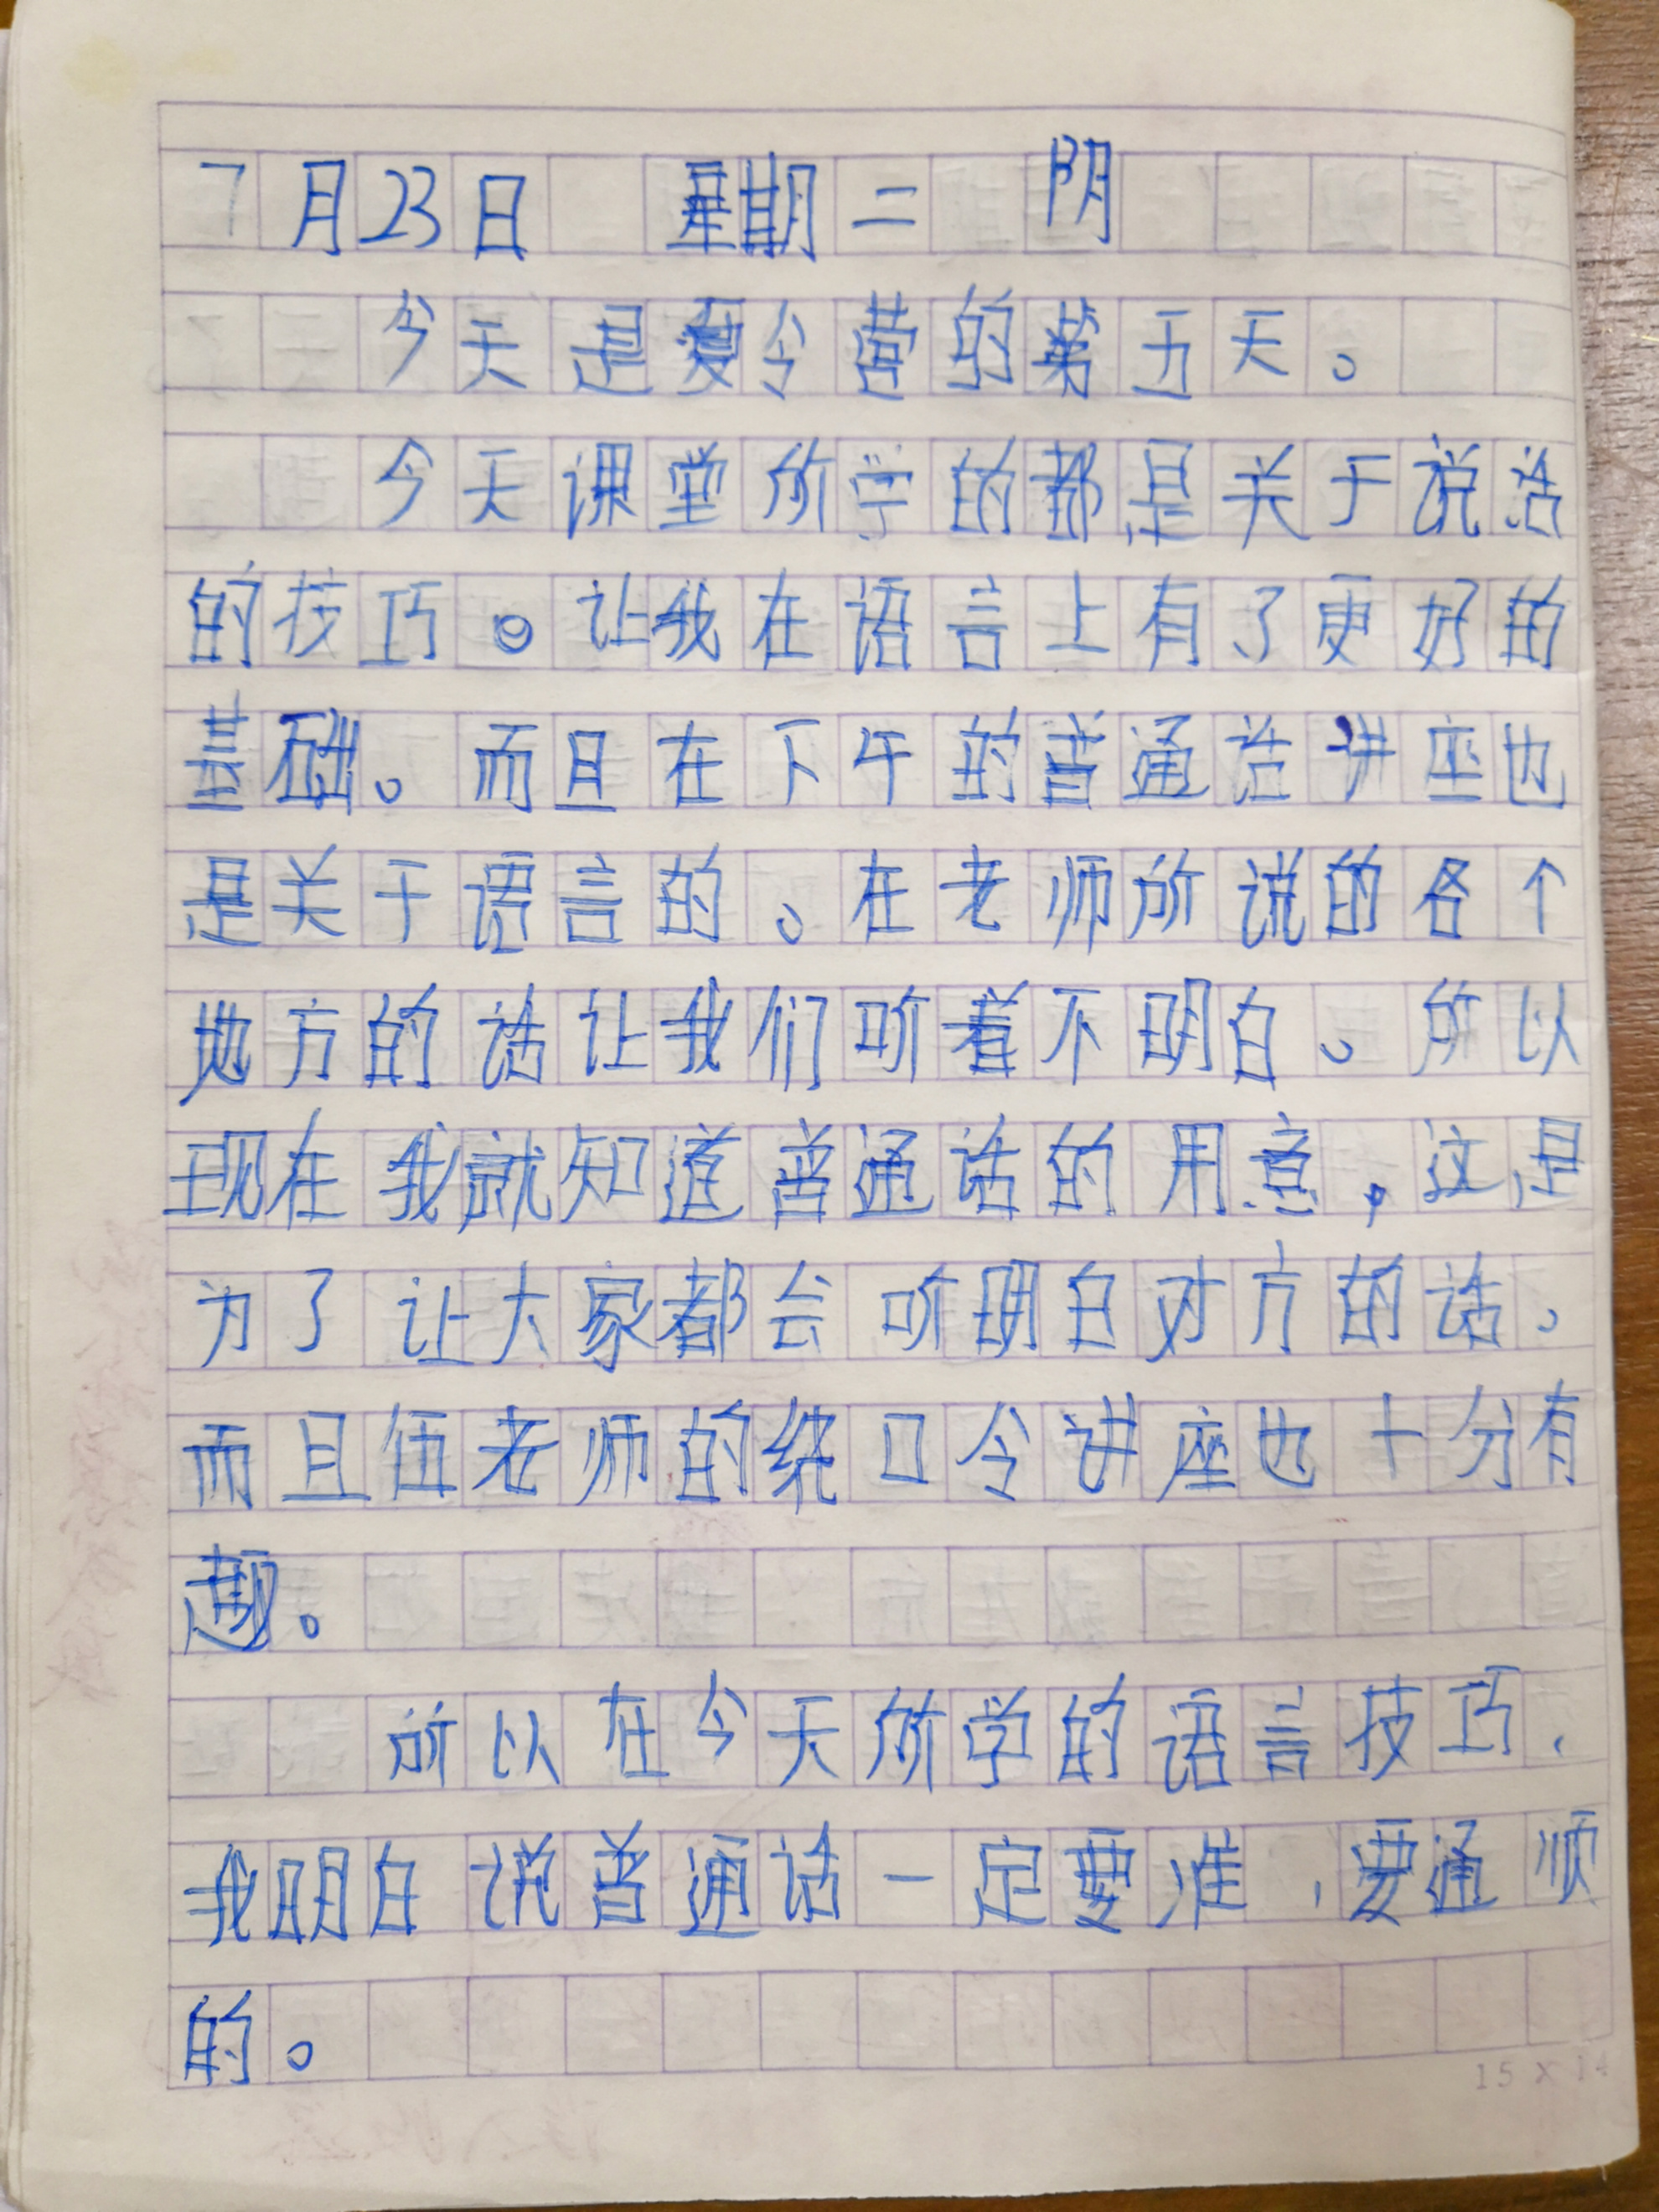 7月23日 星期二 阴
今天是夏令营的第五天。
今天课堂所学的都是关于说话
的技巧。让我在语言上有了更好的
基础。而且在下午的普通话讲座也
是关于语言的。在老师所说的各个
地方的话让我们听着不明白。所以
现在我就知道普通话的用意,这是
为了让大家都会听明白对方的话。
而且伍老师的绕口令讲座也十分有
趣。
所以在今天所学的语言技巧,
我明白说普通话一定要准,要通顺
的。
15 x 14